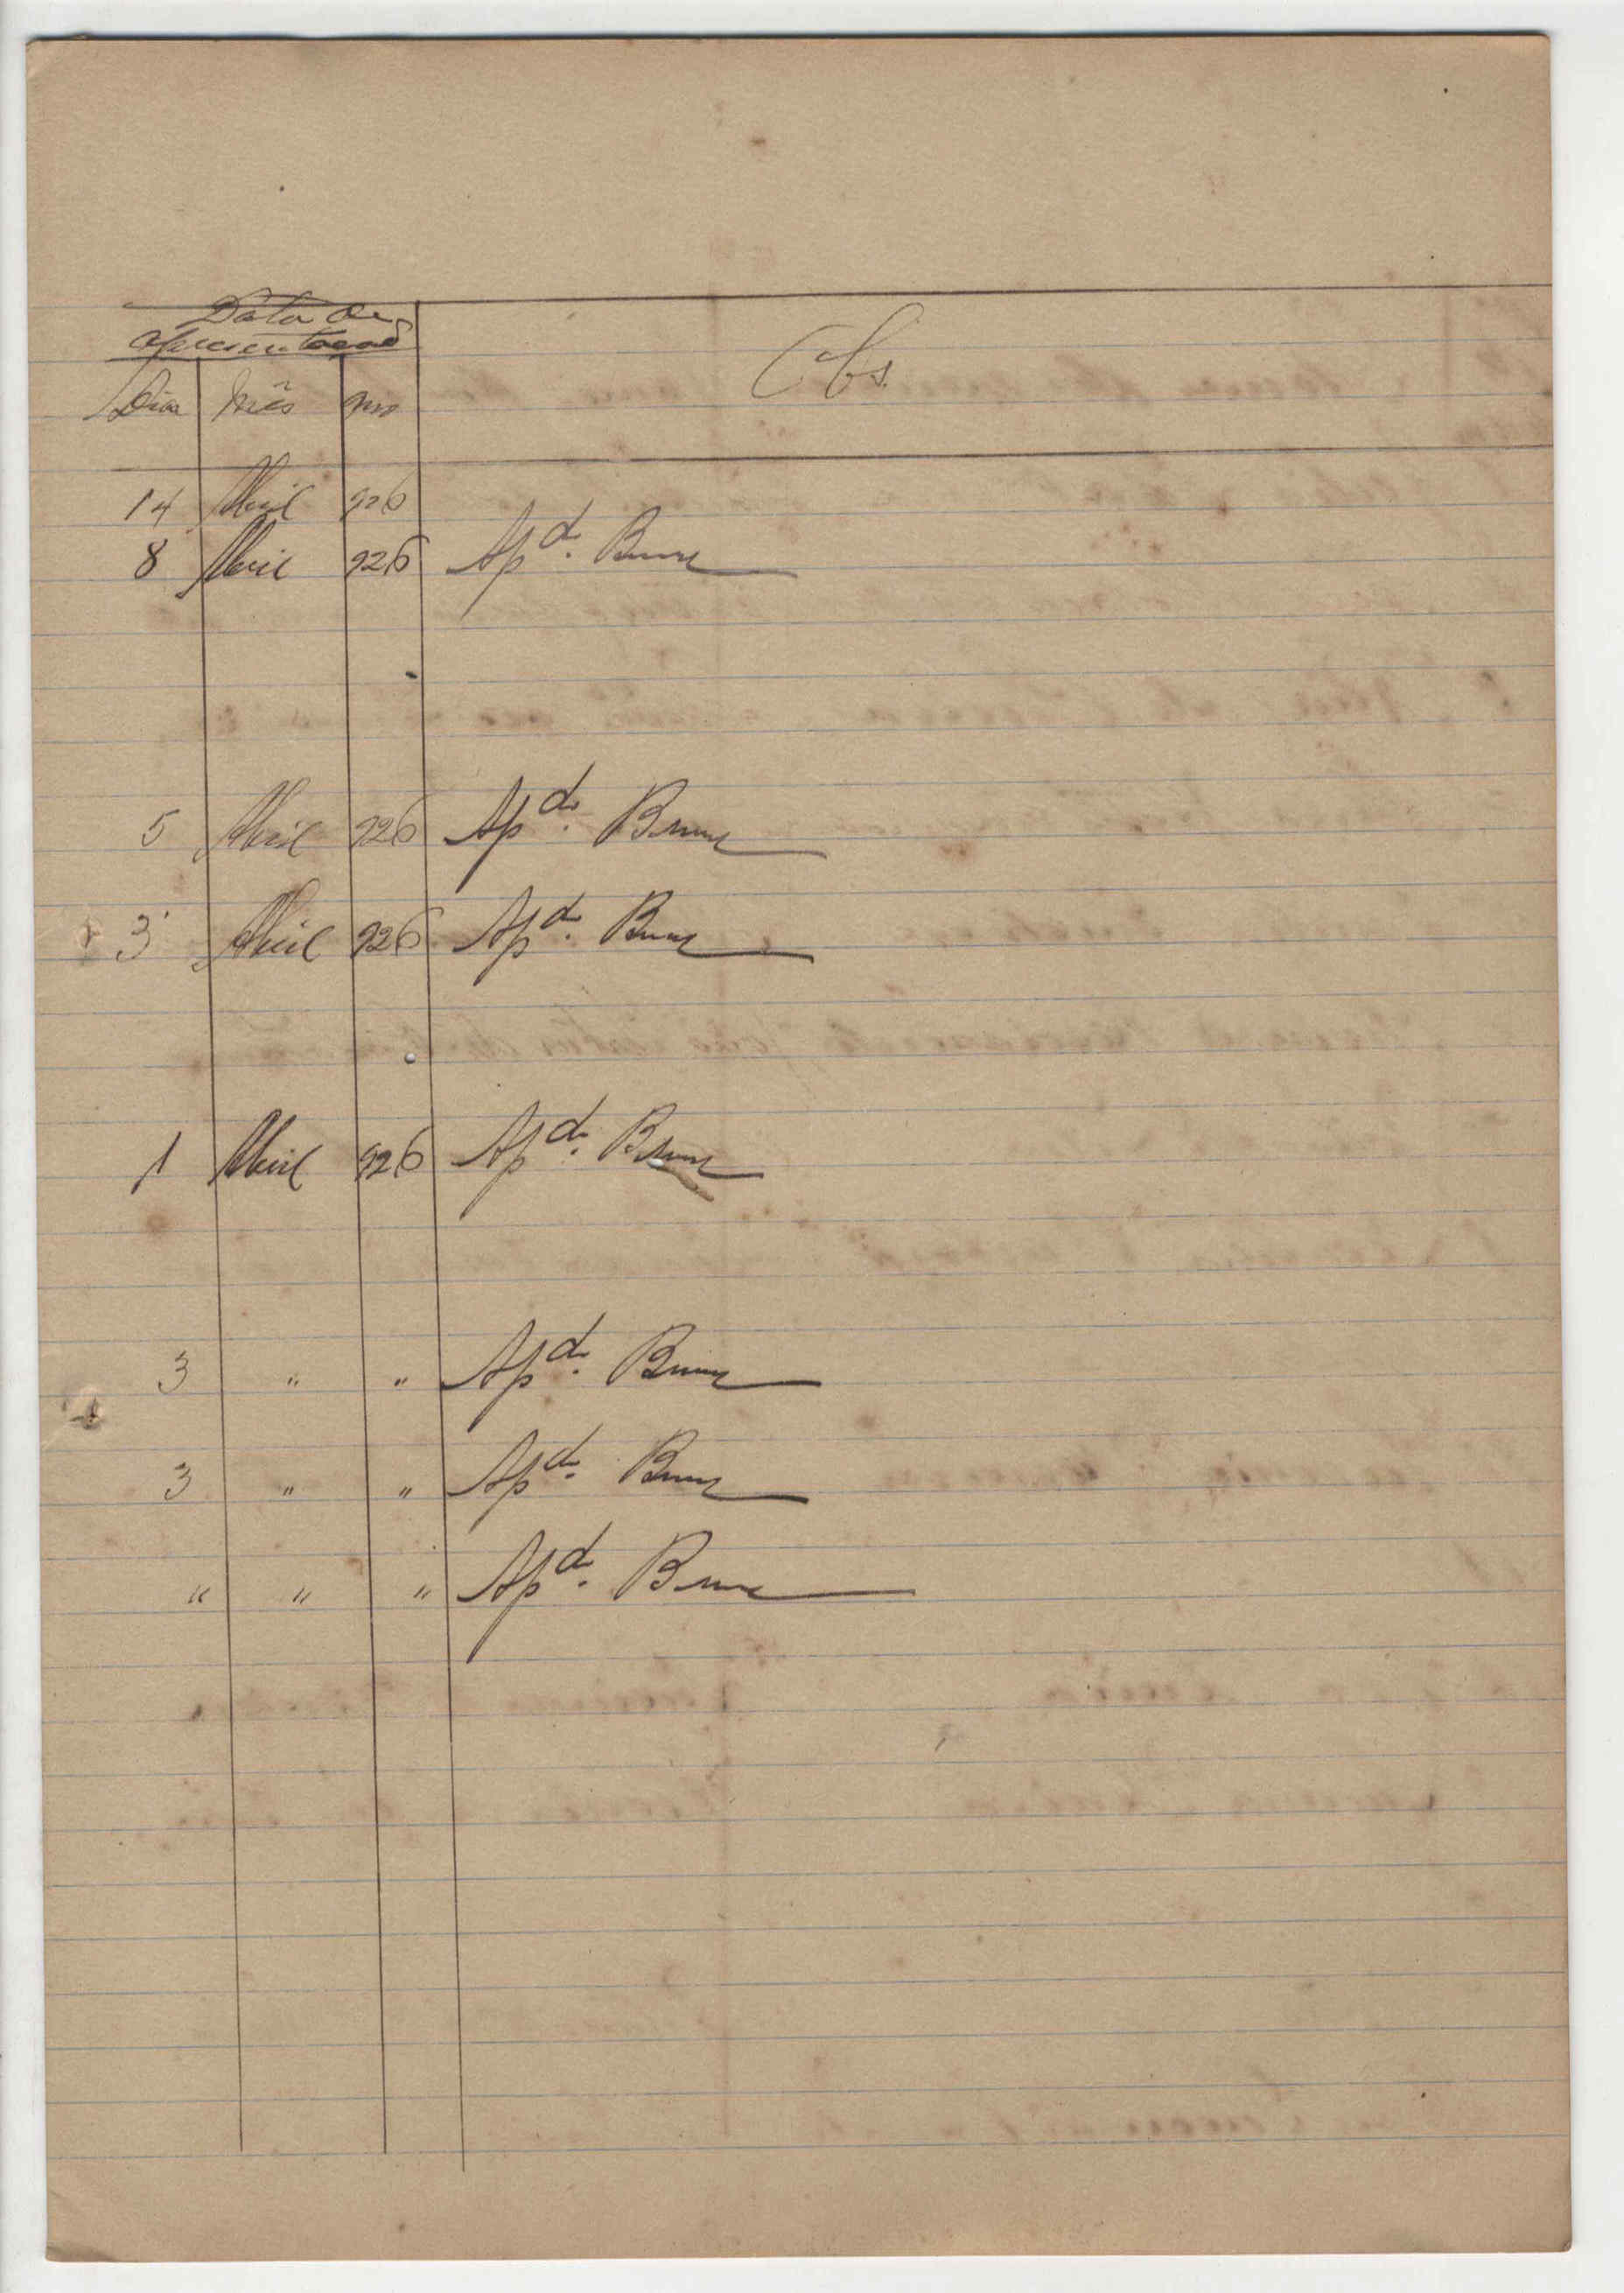 Data de
apresentação
Dia Mês Ano Obs.
14 Abril 926
8 Abril 926 Apd. Bruno
5 Abril 926 Apd. Bruno
3 Abril 926 Apd. Bruno
1 Abril 926 Apd. Bruno
3 " " Apd. Bruno
3 " " Apd. Bruno
" " " Apd. Bruno